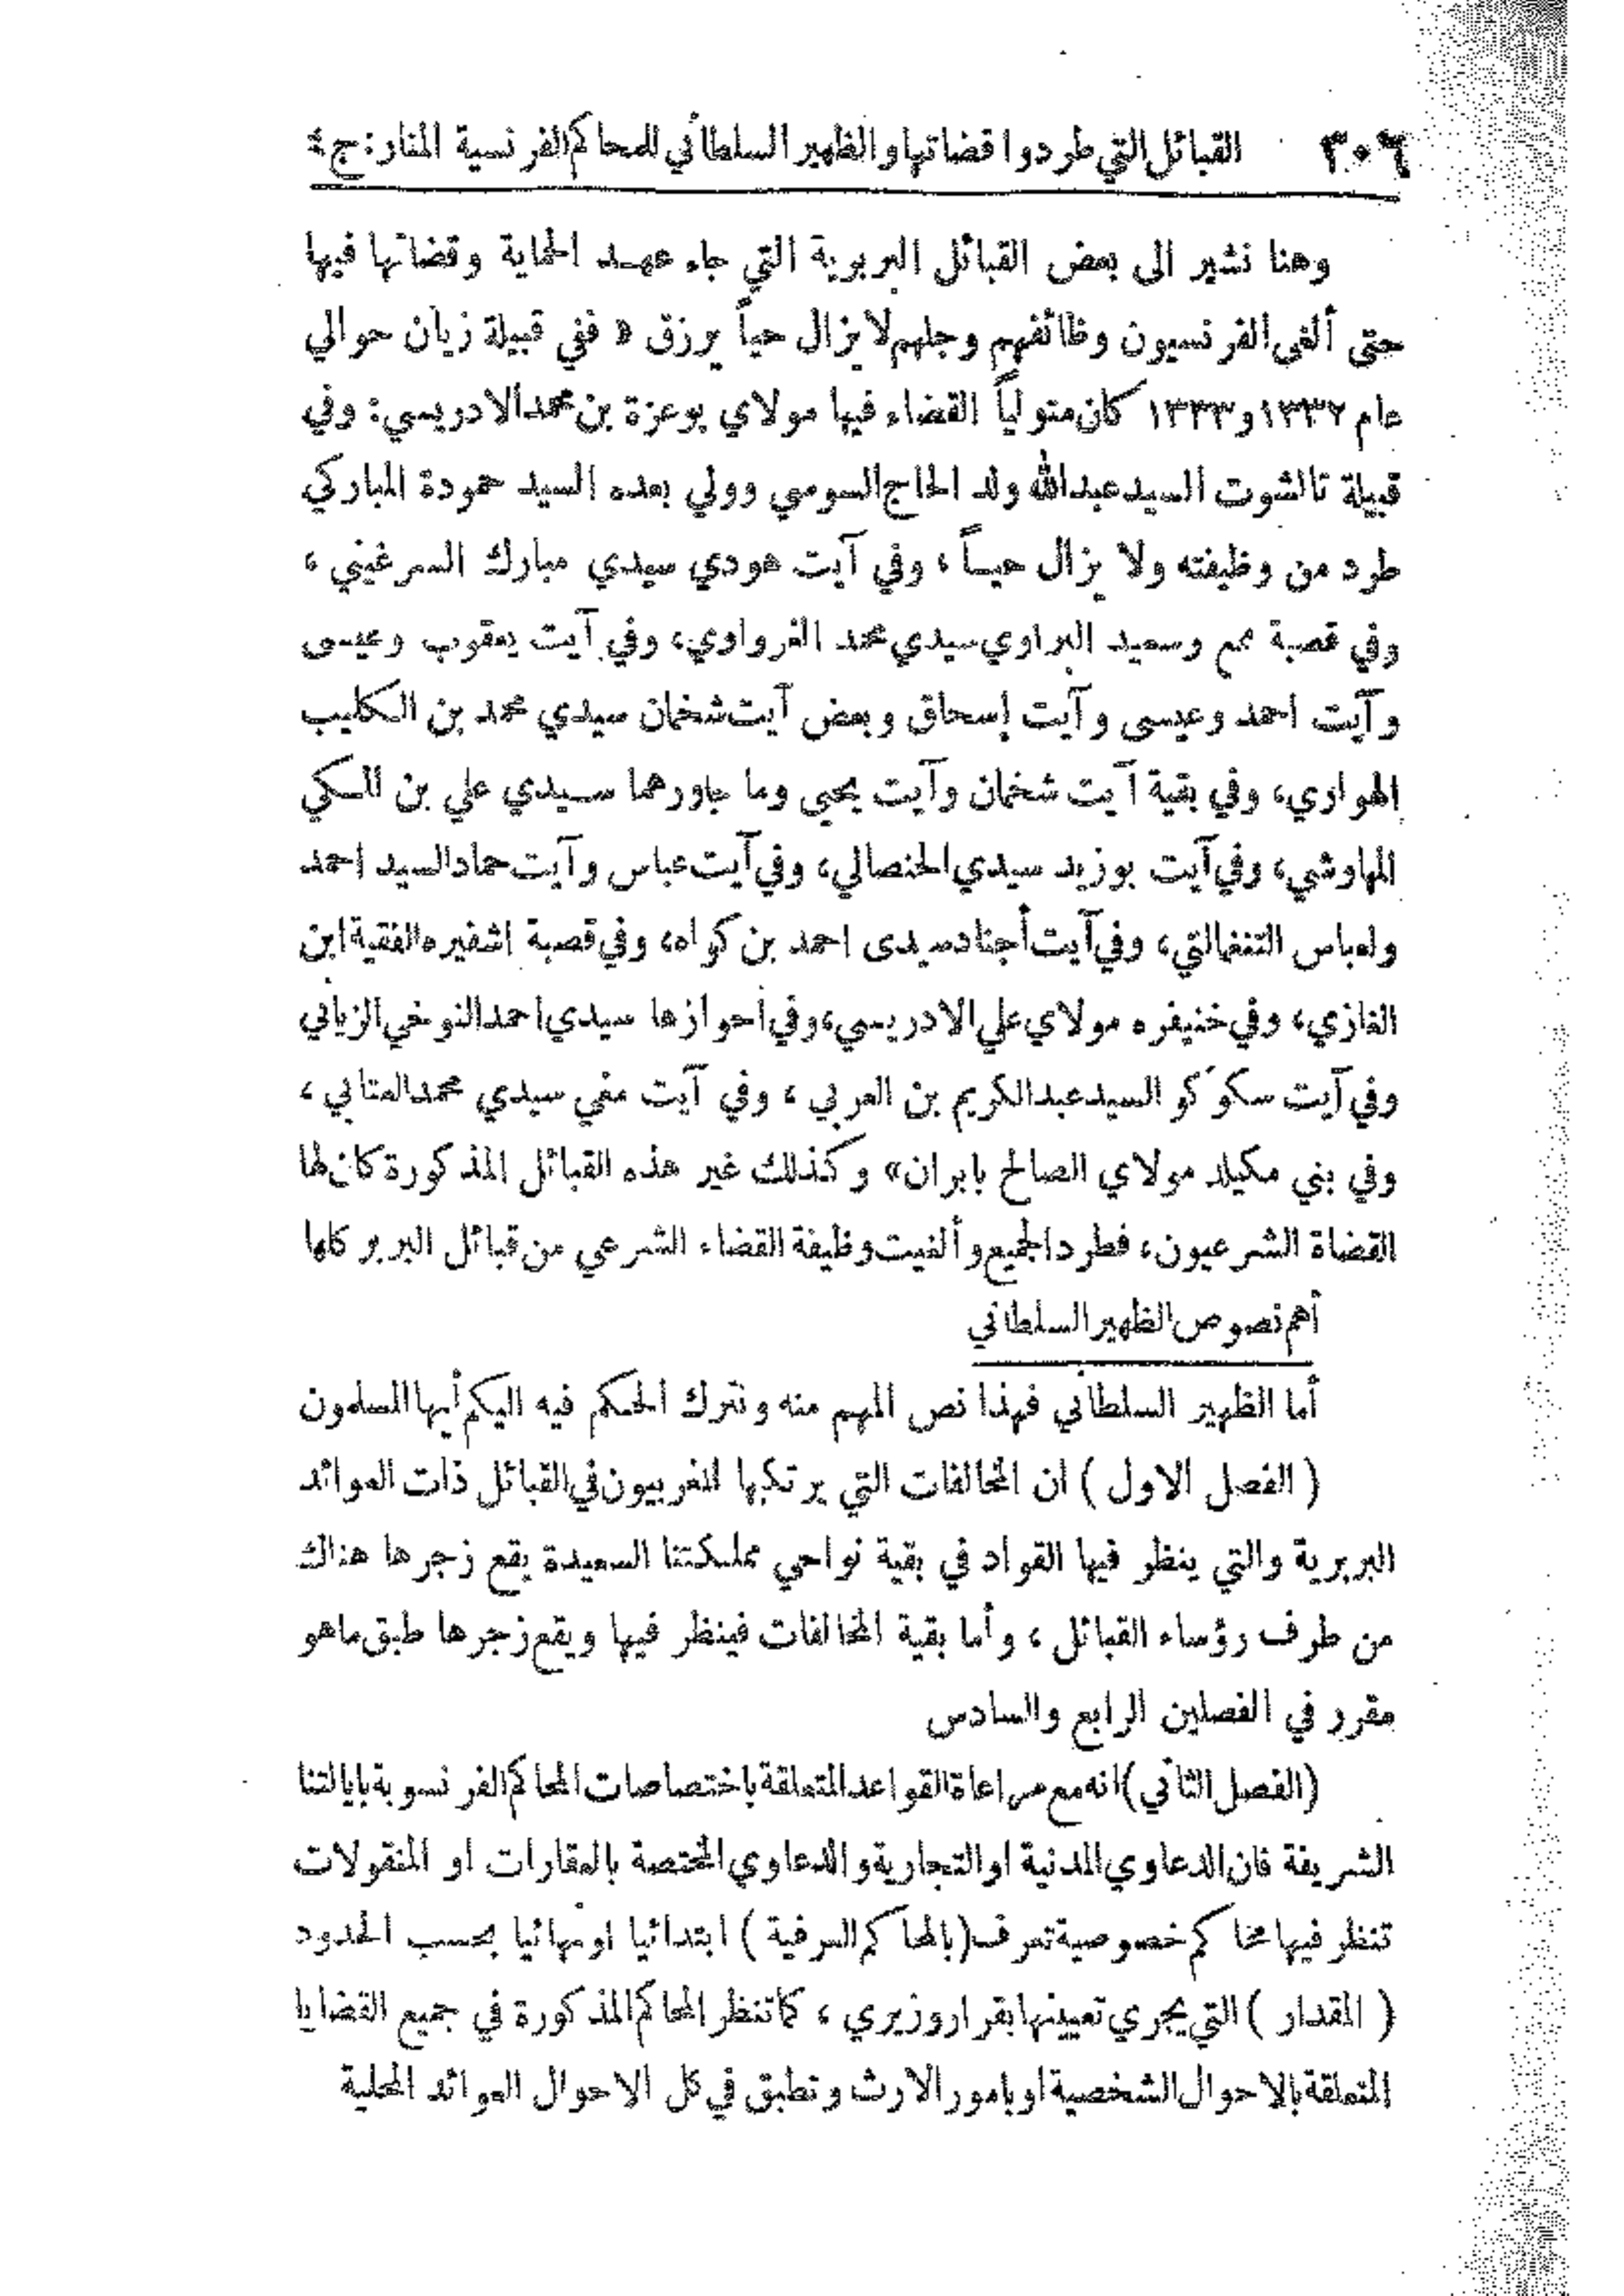 ٣٠٦ القبائل التي طردوا قضاتها والظهير السلطاني للمحاكم الفرنسية المنار: ج ٤
وهنا نشير الى بعض القبائل البربرية التي جاء عهد الحماية وقضاتها فيها
حتى ألغى الفرنسيون وظائفهم وجلهم لا يزال حياً يرزق « ففي قبيلة زيان حوالي
عام ١٣٣٢ و١٣٣٣ كان متولياً القضاء فيها مولاي بوعزة بن محمد الادريسي: وفي
قبيلة تالشوت السيد عبد الله ولد الحاج السوسي وولي بعده السيد حمودة المباركي
طرد من وظيفته ولا يزال حياً ، وفي آيت هودي سيدي مبارك السرغيني ،
وفي قصبة محم وسعيد البراوي سيدي محمد الغرواوي، وفي آيت يعقوب وعيسى
وآيت احمد وعيسى وآيت إسحاق وبعض آيت شخمان سيدي محمد بن الكليب
الهواري، وفي بقية آيت شخمان وآيت يحيى وما جاورهما سيدي علي بن المكي
المهاوشي، وفي آيت بوزيد سيدي الحنصالي، وفي آيت عباس وآيت حماد السيد احمد
ولعباس التنغالتي، وفي آيت أجناد سيدى احمد بن كراه، وفي قصبة اشفيره الفقية ابن
الغازي، وفي خنيفره مولاي علي الادريسي، وفي أحوازها سيدي احمد النوخي الزياني
وفي آيت سكوكو السيد عبد الكريم بن العربي ، وفي آيت مغي سيدي محمد العتابي ،
وفي بني مكيلد مولاي الصالح بابران» وكذلك غير هذه القبائل المذكورة كان لها
القضاة الشرعيون، فطرد الجميع وألغيت وظيفة القضاء الشرعي من قبائل البربر كلها
أهم نصوص الظهير السلطاني
أما الظهير السلطاني فهذا نص المهم منه ونترك الحكم فيه اليكم أيها المسلمون
( الفصل الاول ) ان المخالفات التي يرتكبها المغربيون في القبائل ذات العوائد
البربرية والتي ينظر فيها القواد في بقية نواحي مملكتنا السعيدة يقع زجرها هناك
من طرف رؤساء القبائل ، وأما بقية المخالفات فينظر فيها ويقع زجرها طبق ما هو
مقرر في الفصلين الرابع والسادس
(الفصل الثاني) انه مع مراعاة القواعد المتعلقة باختصاصات المحاكم الفرنسوية بايالتنا
الشريفة فان الدعاوي المدنية او التجارية والدعاوي المختصة بالعقارات او المنقولات
تنظر فيها محاكم خصوصية تعرف (بالمحاكم العرفية ) ابتدائيا او نهائيا بحسب الحدود
( المقدار ) التي يجري تعيينها بقرار وزيري ، كما تنظر المحاكم المذكورة في جميع القضايا
المتعلقة بالاحوال الشخصية او بامور الارث وتطبق في كل الاحوال العوائد المحلية